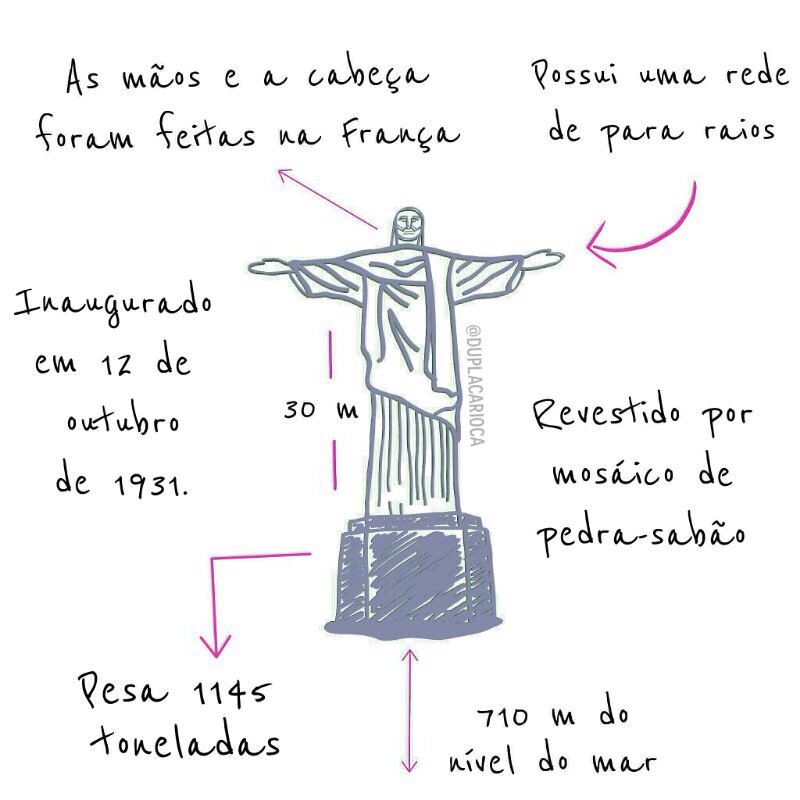 As mãos e a cabeça
foram feitas na França
Possui uma rede
de para raios
Inaugurado
em 12 de
outubro
de 1931.
30 m
@DUPLACARIOCA
Revestido por
mosáico de
pedra-sabão
Pesa 1145
toneladas
710 m do
nível do mar